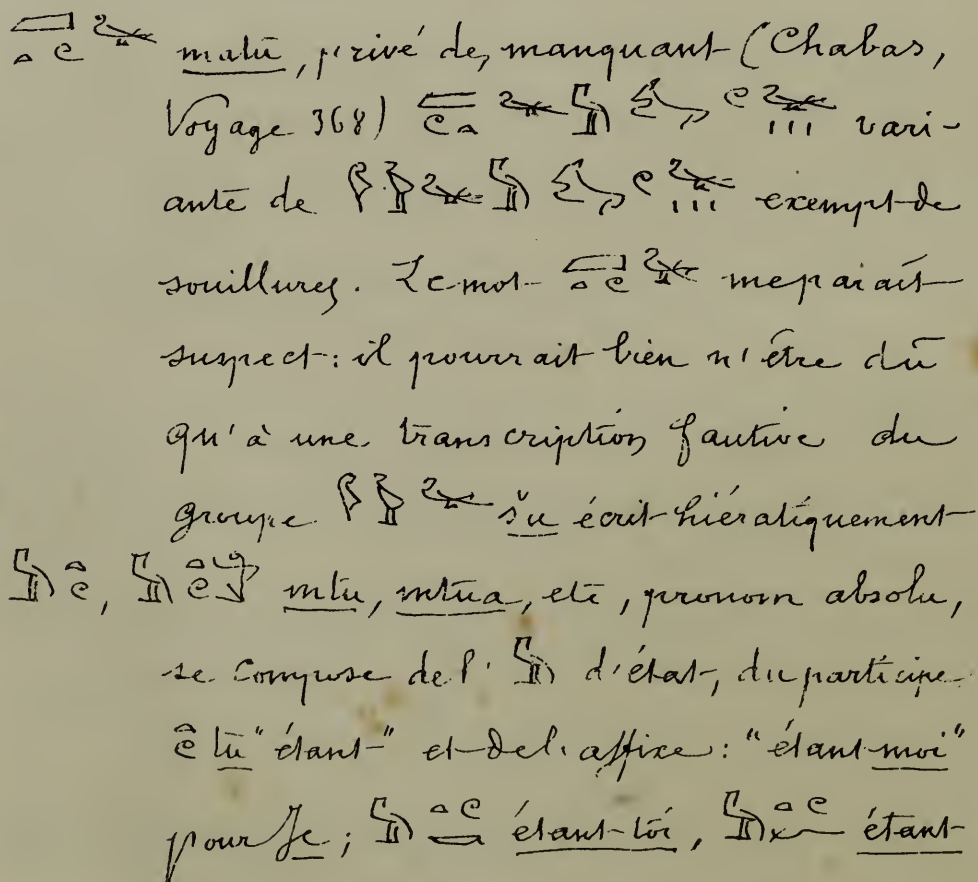 matŭ, privé de, manquant (Chabas,
Voyage 368) vari-
ante de exempt de
souillures. Le mot me paraît
suspect: il pourrait bien n'être dû
qu'à une transcription fautive du
groupe s̀u écrit hiératiquement
mtu, mtŭa, etc, pronom absolu,
se compose de l' d'état, du participe
tŭ "étant" et de l'affixe: "étant moi"
pour Je; étant-toi, étant-